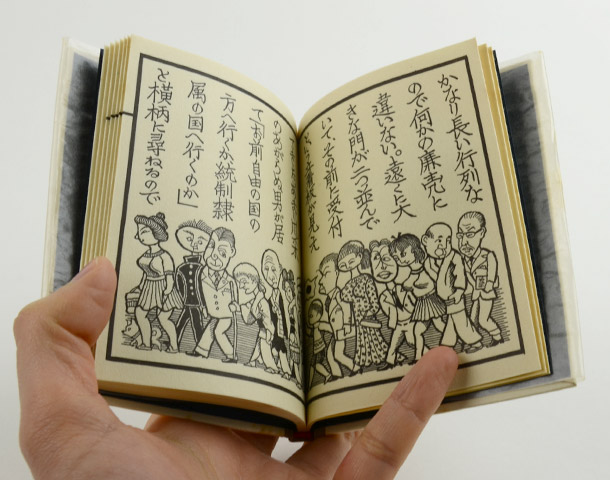 かなり長い行列な
ので何かの廉売に
違いない。遠くに大
きな門が二つ並んで
いて、その前に受付
が見え
男が居
て「お前自由の国の
方へ行くか統制隷
属の国へ行くのか」
と横柄に尋ねるので